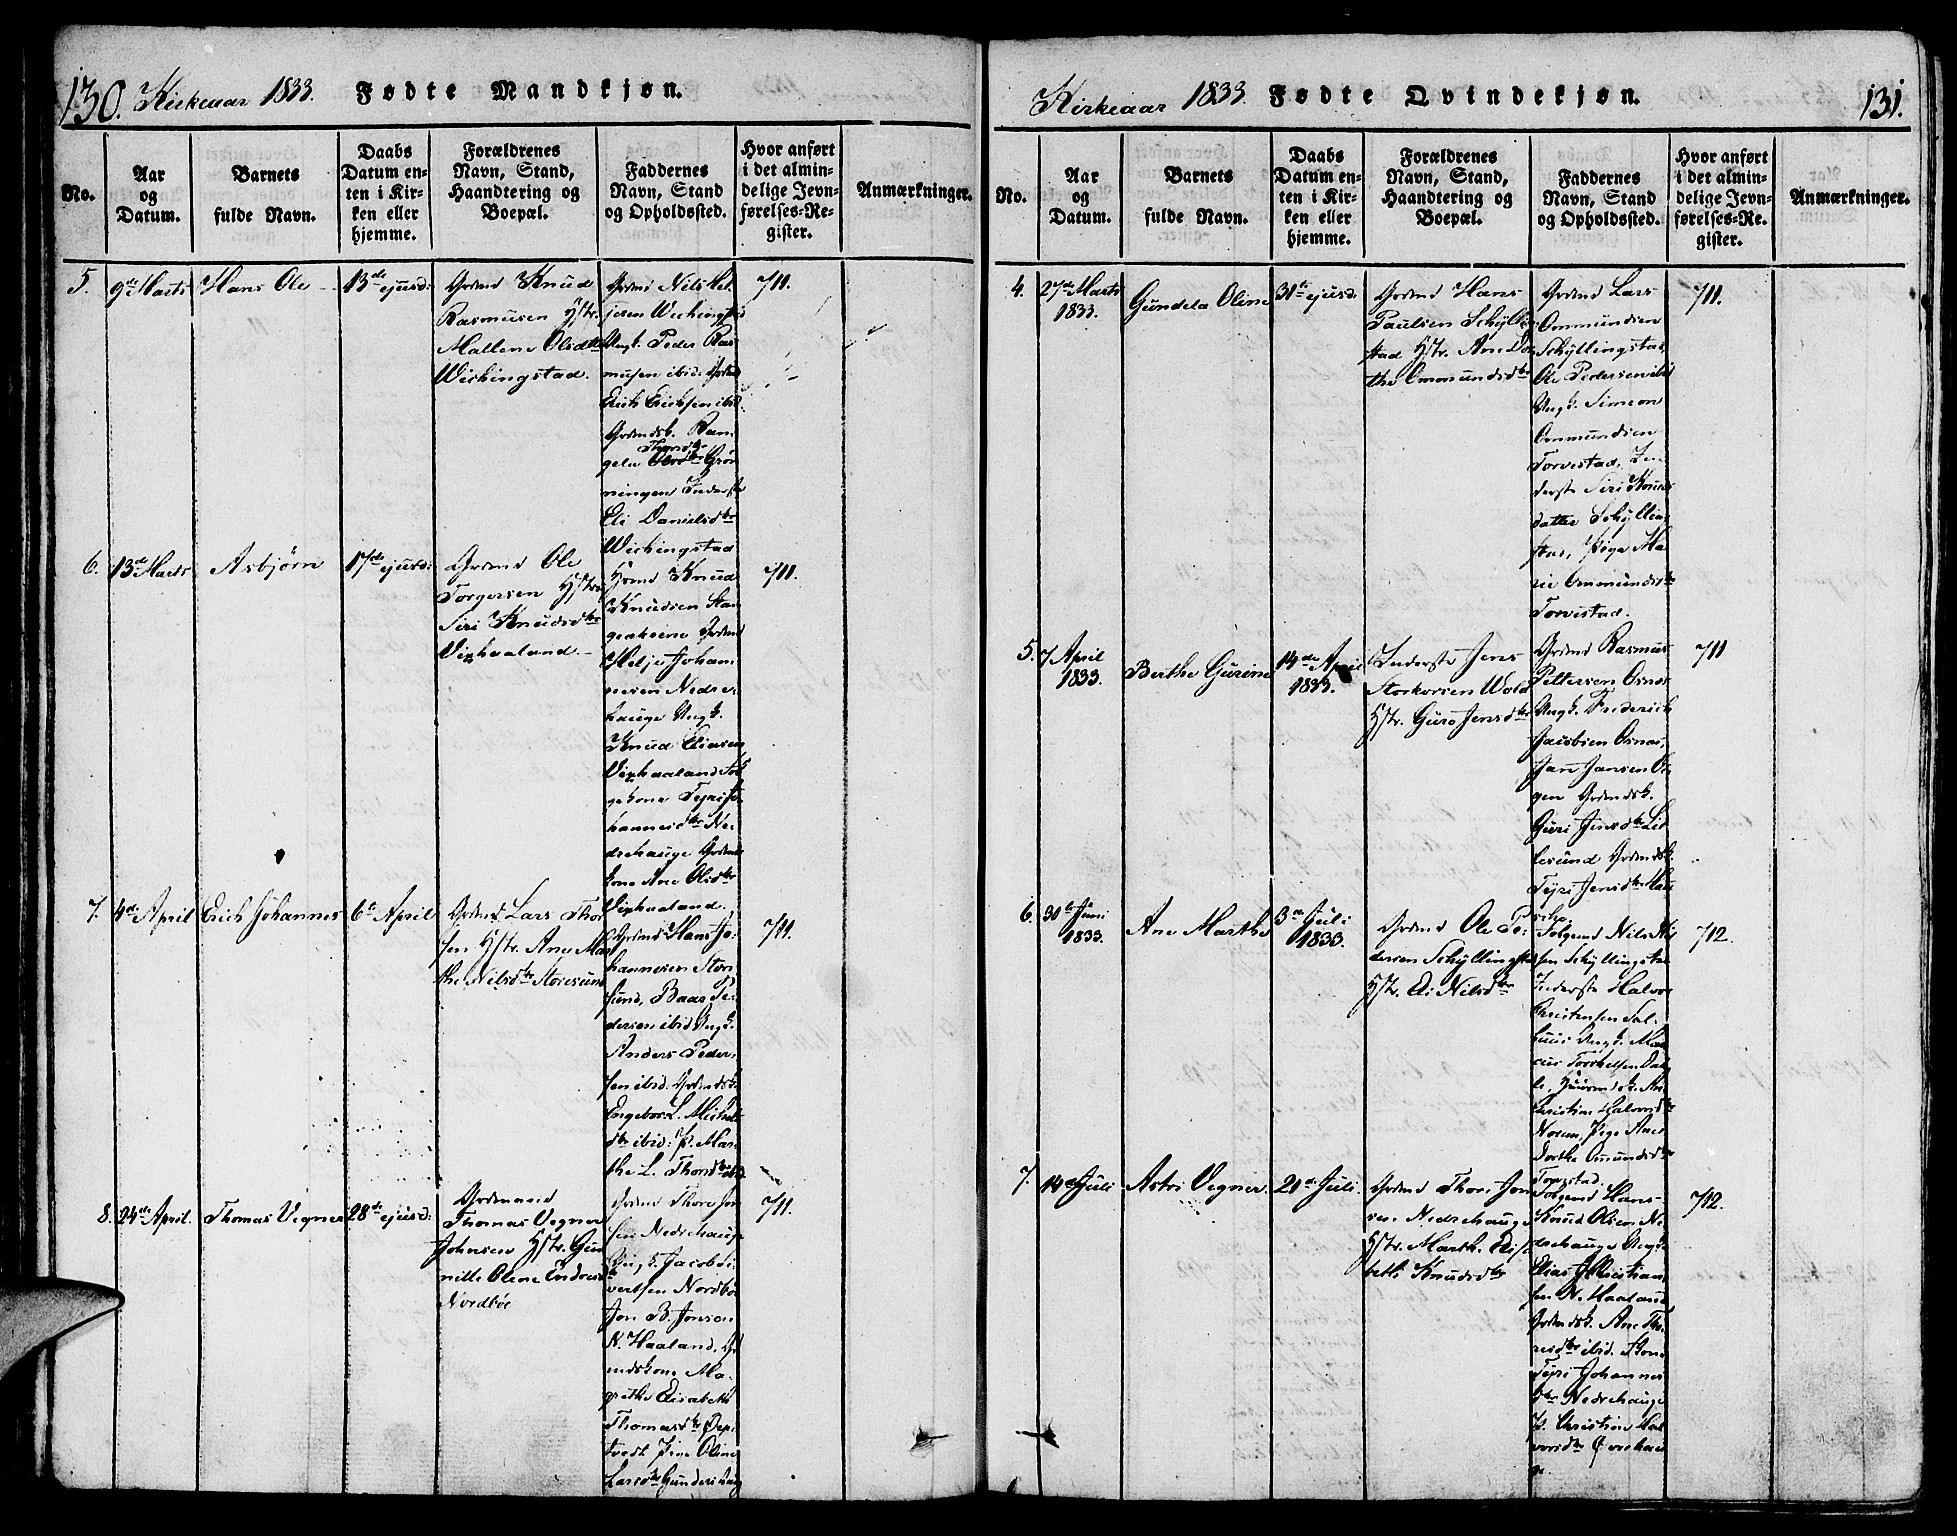 130. Kirkeaar 1833. Fødte Mandkjøn.
No.
Aar
og
Datum.
Barnets
fulde Navn.
Daabs
Datum en-
ten i Kir-
ken eller
hjemme.
Forældrenes
Navn, Stand,
Haandtering og
Boepæl.
Faddernes
Navn, Stand
og Opholdssted.
Hvor anført
i det almin-
delige Jevn-
førelses-Re-
gister.
Anmærkninger.
5.
9de Marts
Hans Ole
13de ejusd:
Grdmd Knud
Rasmusen Hstr.
Mallene Olsdtr
Wichingstad.
Grdmd Nils Hel-
jesen Wichingstad
Ungk. Peder Ras
musen ibid: Grdmd
Erich Erichsen ibid
Grdmdsk. Ran-
Thorsdtr
gela Olsdtr Grøn
ningen Inderste
Eli Danielsdtr
Wichingstad
711.
6.
13de Marts
Asbjørn
17de ejusd:
Grdmd Ole
Torgersen Hstr
Siri Knudsdtr
Vixhaaland.
Hsmd Knud
Knudsen Stan
Grdmd
Helje Johan-
nesen Nedre-
hauge Ungk.
Knud Eliasen
Vixhaaland
Tejri Jo-
hannesdtr Ne-
drehauge Grdmds
kone Ane Olsdtr
Vixhaaland.
711.
7.
4de April
Erich Johannes
6te April
Grdmd Lars Thor
sen Hstr. Ane Mar
the Nilsdtr Storesund
Grdmd Hans Jo-
hannesen Store
sund, Baar Pe-
dersen ibid Ungk.
Anders Peder-
sen ibid. Grdmdsk.
Engebor L. Michels
dtr ibid: P. Mar-
the L. Thorsdtr ibid
711.
8.
24de April.
Thomas Vegner
28de ejusd:
Grdmand
Thomas Vegner
Johnsen Hstr. Gun
nille Olene Endresdtr
Nordbøe
Grdmd Thore Jon
sen Nedrehauge
Ungk. Jacob Si-
vertsen Nordbø
Jon B. Jonsen
N. Haaland. Gr
mdskone Ma-
grethe Elisabeth
Thomasdtr
tvedt Pige Oline
Larsdtr Gunders haug
711.
Kirkeaar 1833. Fødte Qvindekjøn. 131.
No.
Aar
og
Datum.
Barnets
fulde Navn.
Daabs
Datum en-
ten i Kir-
ken eller
hjemme.
Forældrenes
Navn, Stand,
Haandtering og
Boepæl.
Faddernes
Navn, Stand
og Opholdssted.
Hvor anført
i det almin-
delige Jevn-
førelses-Re-
gister.
Anmærkninger.
4.
27de Marts
1833.
Gundela Oline
31te ejusd:
Grdmd Hans
Paulsen Schylling
stad Hstr. Ane Dor
the Ommundsdtr
Grdmd Lars
Ommundsen
Schyllingstad,
Ole Pedersen ibid
Ungk. Simeon
Ommundsen
Torvestad, In-
derste Siri Knuds
datter Schylling
stad, Pige Ma-
rie Ommundsdtr
Torvestad.
711.
5.
7 April
1833.
Berthe Gurine
14de April
1833.
Inderste Jens
Storkorsen Wold
Hstr. Guro Jensdtr
Grdmd Rasmus
Pettersen Osnes
Ungk. Friderich
Jacobsen Osnes,
Jan Jansen
gen Grdmdsk.
Guri Jensdtr Lit
lesund Grdmdsk.
Tejri Jensdtr Hau
sche.
711
6.
30te Juni
1833.
Ane Marthe
3de Juli
1833.
Grdmd Ole Pe-
dersen Schyllingstad
Hstr. Eli Nilsdtr
Følgemd Nils Nil
sen Schyllingstad
Inderste Halvor
Christensen Sal-
huus Ungk. Mar
cus Torchelsen
Huusmdsk. Ane
Christine Halvorsdtr
Noren, Pige Ane
Dorthe Omundsdtr
Torvstad.
712.
7.
14de Juli
Astri Vegner.
21de Juli.
Grdmd Thor Jon
sen Nedrehauge
Hstr. Marth. Elisa
beth Knudsdtr
Følgemd Hans
Knud Olsen Ne
drehauge Ungk.
Elias J Christian
sen N. Haaland
Grdmdsk. Ane Tho
resdtr ibid. Kone
Tejri Johannes
dtr Nedrehauge
P. Christine Hal
vorsdtr Øvrehau
ge.
712.